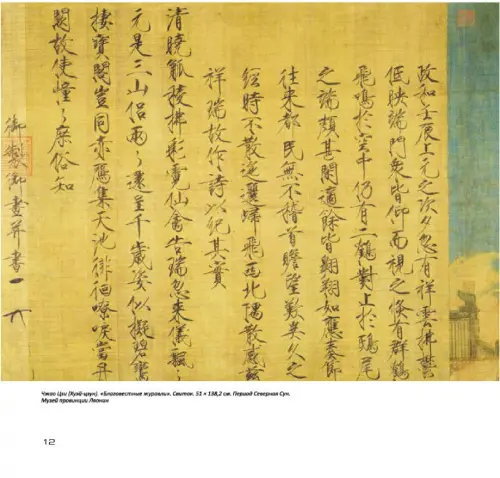 政和壬辰上元之次夕忽有祥雲拂鬱
低映端門衆皆仰而視之倏有群鶴
飛鳴於空中仍有二鶴對止於鴟尾
之端頗甚閑適餘皆翱翔如應奏節
往來都民無不稽首瞻望歎異久之
經時不散迤邐歸飛西北隅散感茲
祥瑞故作詩以紀其實
清曉觚稜拂彩霓仙禽告瑞忽來儀飄々
元是三山侶兩々還呈千歲姿似擬碧鸞
棲寶閣豈同赤鴈集天池徘徊嘹唳當丹
闕故使憧々庶俗知
御製御畫并書
Чжао Цзи (Хуэй-цзун). «Благовестные журавли». Свиток. 51 × 138,2 см. Период Северная Сун.
Музей провинции Ляонин
12